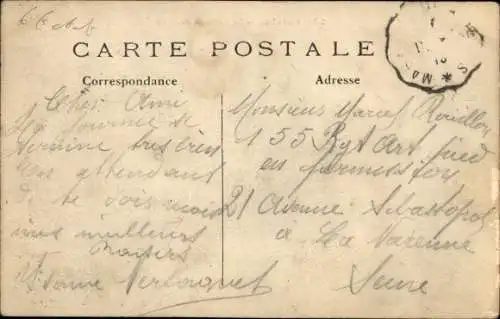 CARTE POSTALE
Correspondance
Adresse
Cher Ami
La journée se
termine très bien
en attendant
de te voir mais
mes meilleurs
Baisers
Monsieur Marcel Rouillon
155 Rgt Art pied
en permission
21 Avenue Sébastopol
à La Varenne
Seine